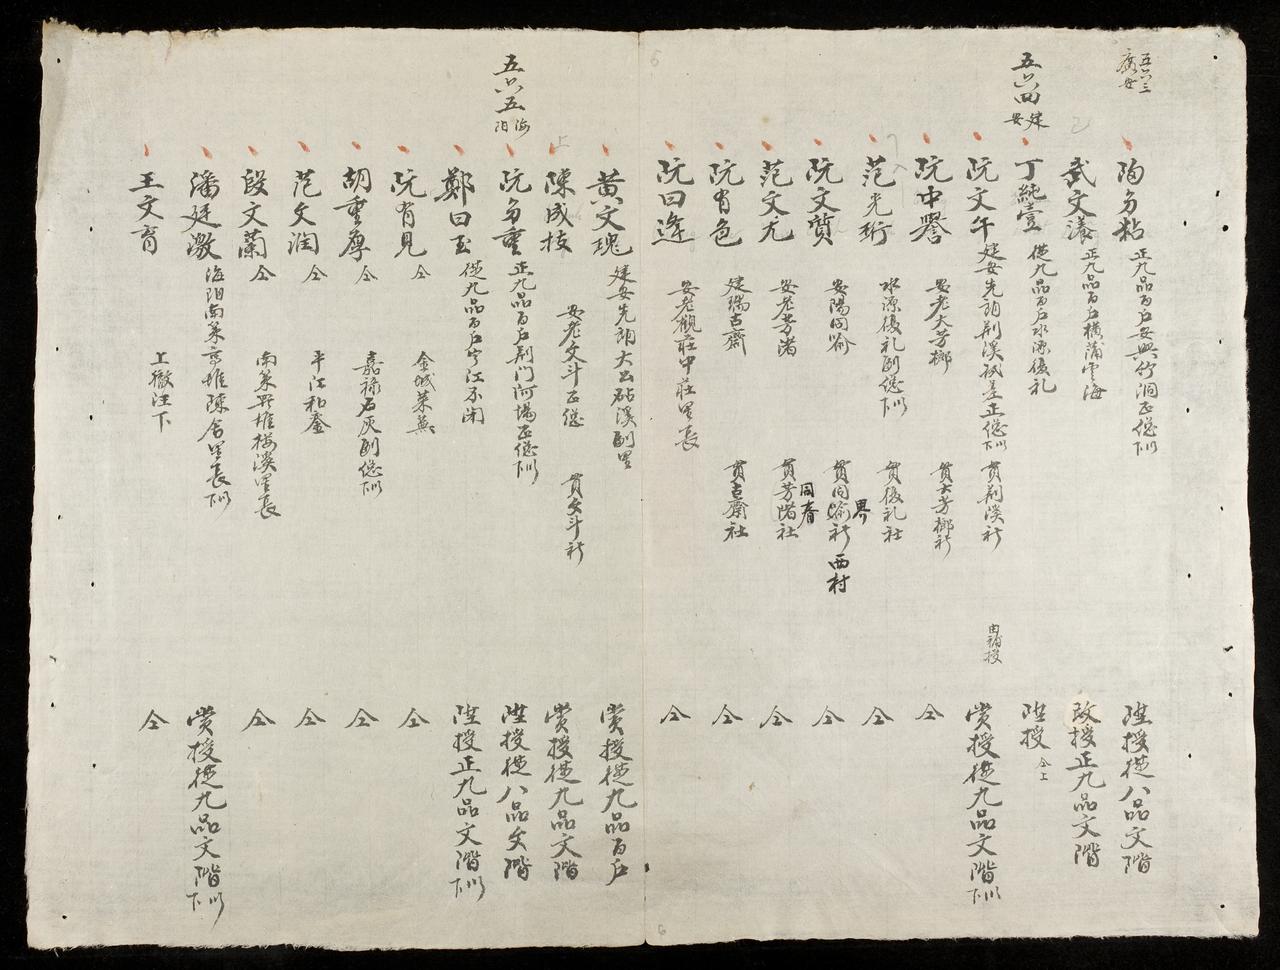 五六三
陶多粘 正九品百戶安興竹洞正總下川 陞授從八品文階
武文漾 正九品百戶橫蒲雲海 改授正九品文階
五六四
建安
丁純壹 從九品百戶水源優礼 陞授仝上
阮文午 建安先朗荆溪祇差正總下川 貫荆溪社 由補授 賞授從九品文階下川
阮中譽 安老大芳榔 貫大芳榔社 仝
范光珩 水源優礼副總下川 貫優礼社 仝
阮文質 安陽同喻 貫同喻社 界 西村 仝
范文尤 安老芳渚 貫芳渚社 同春 仝
阮有色 建瑞古齋 貫古齋社 仝
阮曰逢 安老觀莊中莊里長 仝
黃文瑰 建安先朗大出砧溪副里 賞授從九品百戶
陳成枝 安老文斗正總 貫文斗社 賞授從九品文階
五六五
海陽
阮多重 正九品百戶荆门河場正總下川 陞授從八品文階
鄭曰玉 從九品百戶宁江不闭 陞授正九品文階下川
阮有見 仝 金城萊蕪 仝
胡重厚 仝 嘉祿石灰副總下川 仝
范文润 仝 平江和 仝
段文蘭 仝 南策 里長 仝
潘廷激 海陽南策 陳舍里長下川 賞授從九品文階下川
王文育 上徹注下 仝